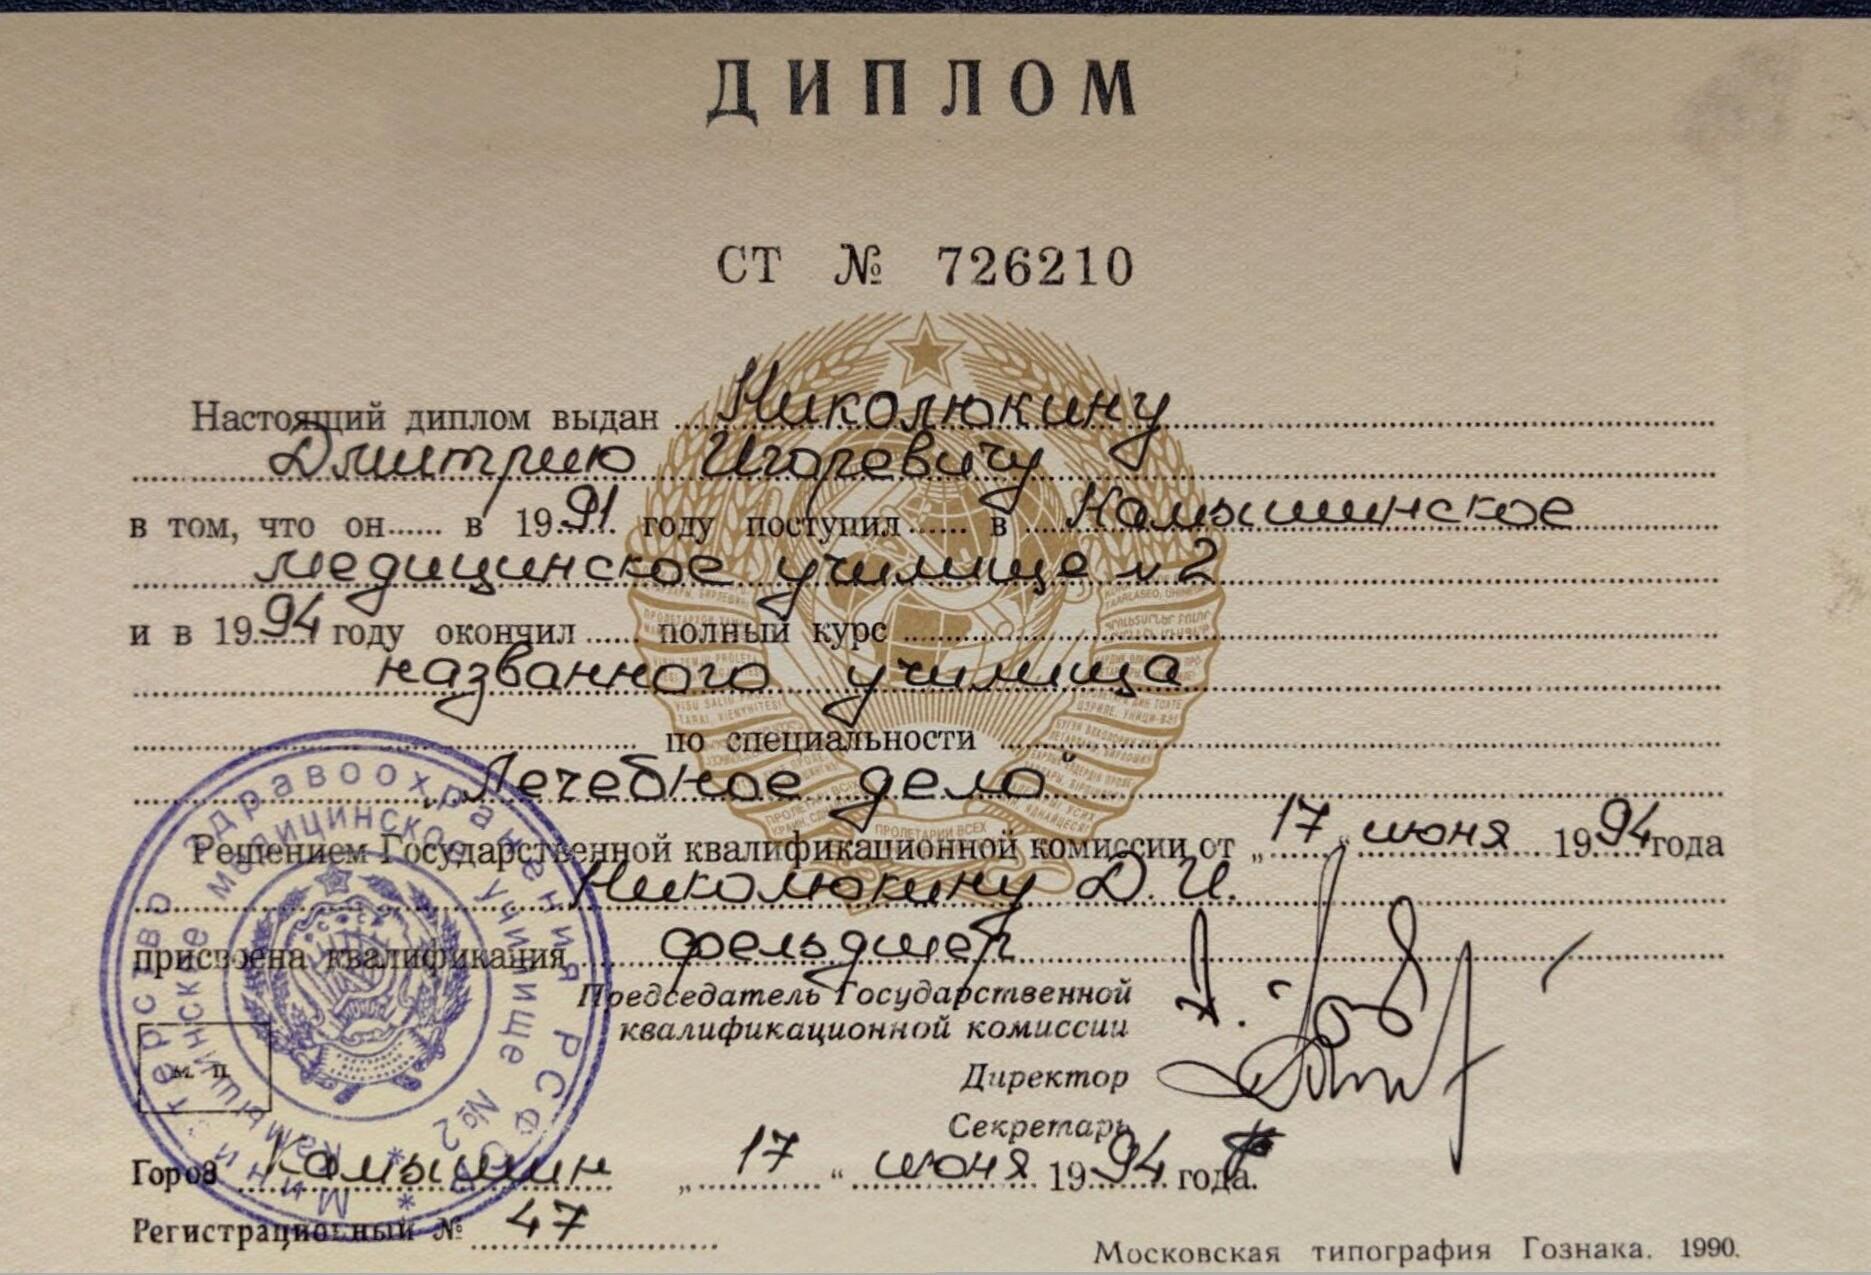 ДИПЛОМ
СТ № 726210
Настоящий диплом выдан Николюкину
Дмитрию Игоревичу
в том, что он в 1991 году поступил в Камышинское
медицинское училище №2
и в 1994 году окончил полный курс
названного училища
по специальности
„Лечебное дело"
Решением Государственной квалификационной комиссии от „17" июня 1994 года
Николюкину Д.И.
присвоена квалификация фельдшер
Председатель Государственной
квалификационной комиссии
Директор
Секретарь
м. п.
Город Камышин „17" июня 1994 года.
Регистрационный № 47
Московская типография Гознака. 1990.
Министерство здравоохранения РСФСР
Камышинское медицинское училище №2
ПРОЛЕТАРИИ ВСЕХ